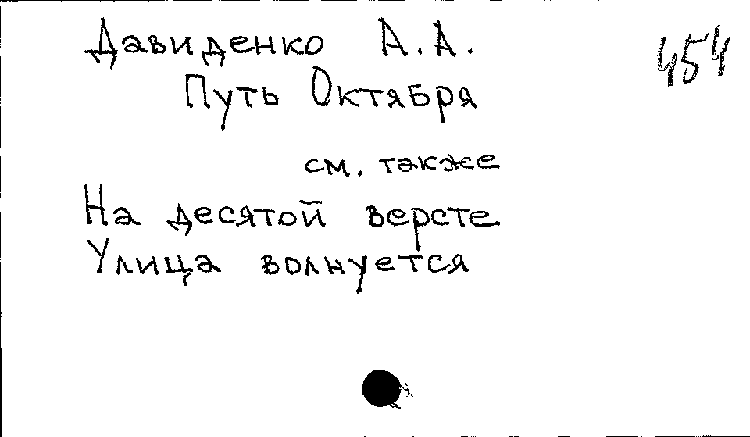 Давиденко А.А.
454
Путь Октября
см. также
На десятой версте
Улица волнуется